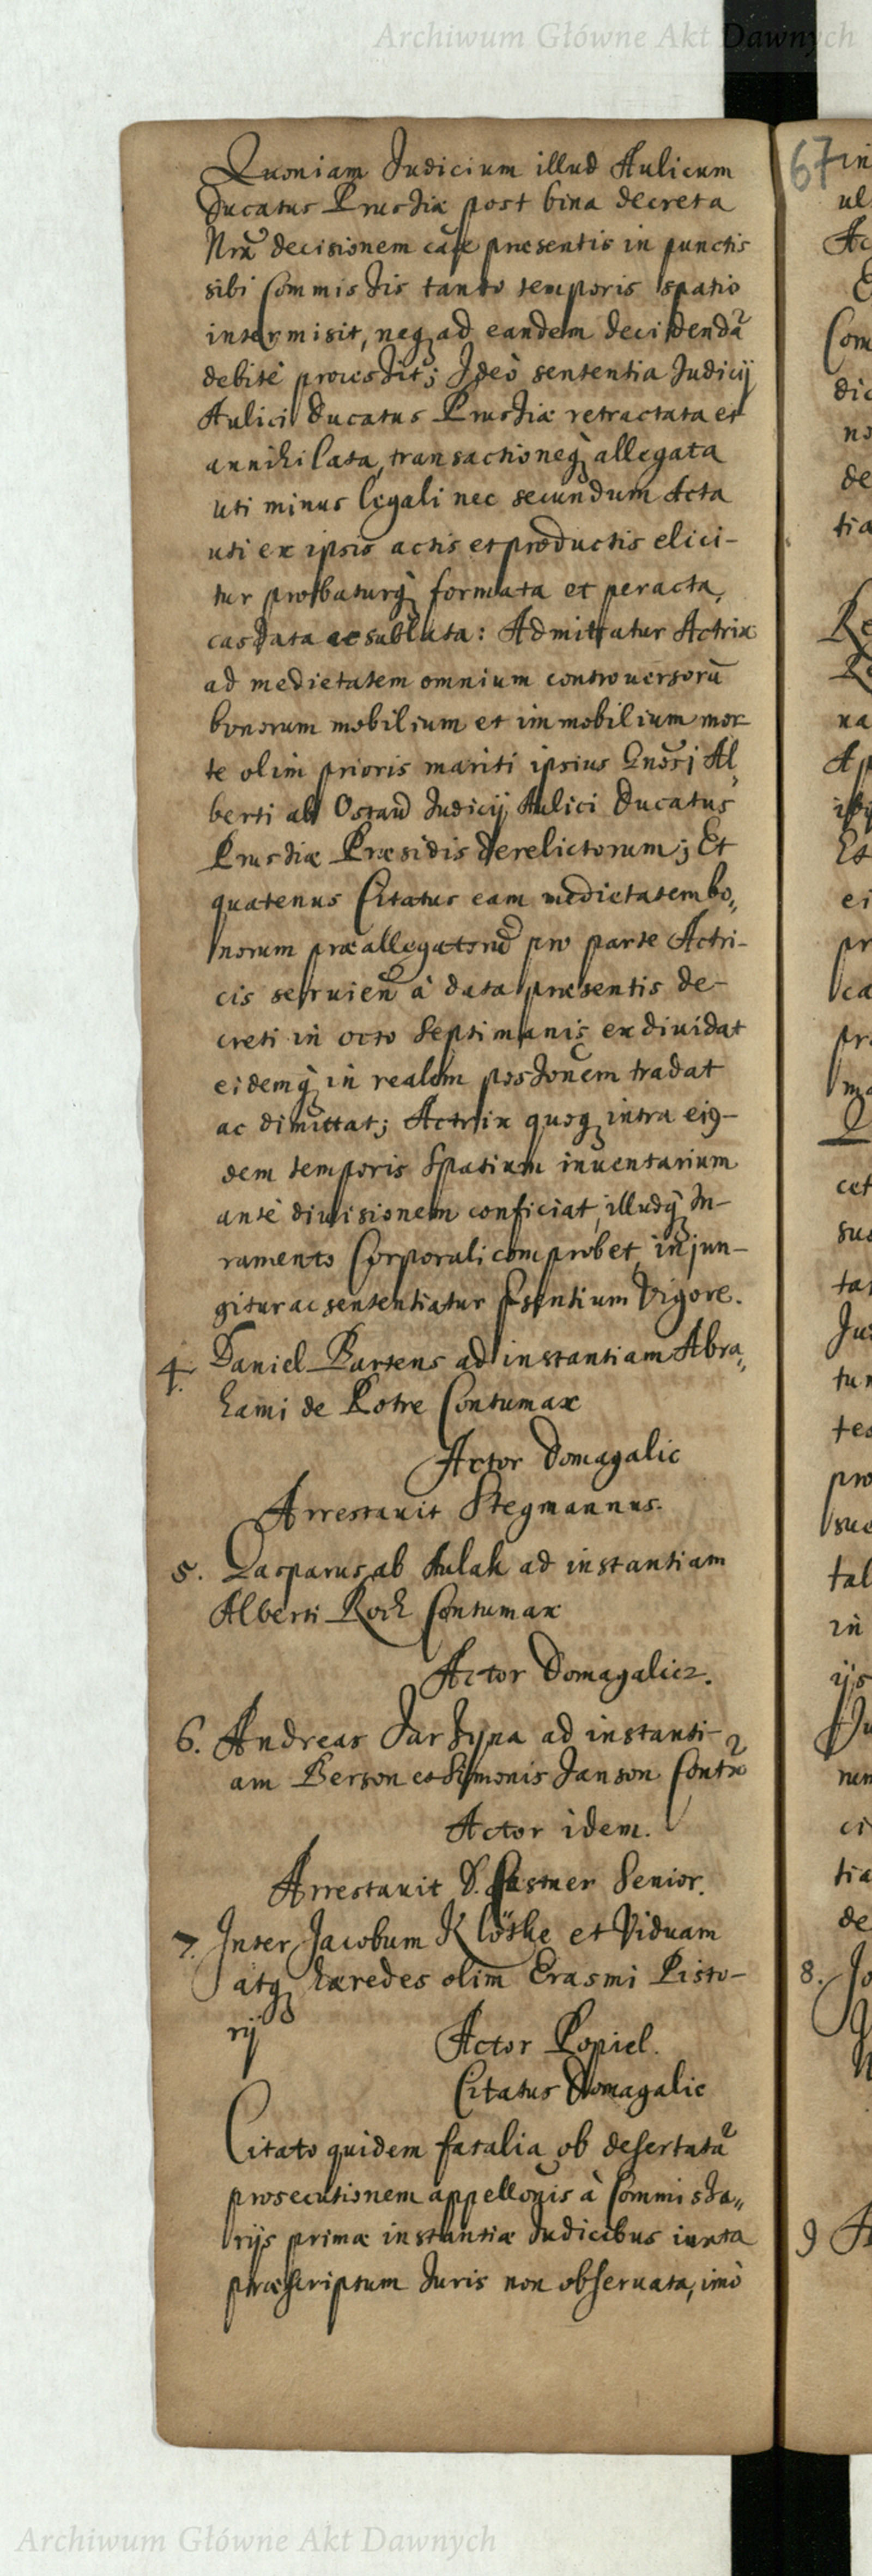 Archiwum Główne Akt Dawnych
Quoniam Judicium illud Aulicum
Ducatus Prussiæ post bina decreta
Nrã decisionem cãe præsentis in punctis
sibi Commissis tanto temporis spatio
intermisit, neq, ad eandem decidendã
debitè processit; Ideò sententia Judicij
Aulici Ducatus Prussiæ retractata et
annihilata, transactioneq, allegata
uti minus legali nec secundum Acta
uti ex ipsis actis et productis elici-
tur probaturq, formata et peracta,
cassata ac sublata: Admittatur Actrix
ad medietatem omnium controuersorũ
bonorum mobilium et immobilium mor
te olim prioris mariti ipsius Gnosi Al,
berti ab Ostaw Judicij Aulici Ducatus
Prussiæ Præsidis derelictorum; Et
quatenus Citatus eam medietatem bo,,
norum præallegatorũ pro parte Actri-
cis seruien à data præsentis de-
creti in octo Septimanis exdiuidat
eidemq, in realem possionem tradat
ac dimittat; Actrix quoq, intra eiq-
dem temporis Spatium inuentarium
antè diuisionem conficiat, illudq, Iu-
ramento Corporali comprobet, injun-
gitur ac sententiatur pñtium Vigore.
4. Daniel Bartens ad instantiam Abra,,
hami de Potre Contumax
Actor Domagalic
Arrestauit Stegmannus.
5. Casparus ab Aulak ad instantiam
Alberti Koch Contumax
Actor Domagalicz.
6. Andreas Jarszyna ad instanti-
am Berson et Simonis Janson Contx
Actor idem.
Arrestauit D. Fastner Senior.
7. Inter Jacobum Klöthe et Viduam
atq, hæredes olim Erasmi Pisto-
rij
Actor Popiel.
Citatus Domagalic
Citato quidem fatalia ob desertatã
prosecutionem appellonis à Commissa,,
rijs primæ instantiæ Judicibus iuxta
præscriptum Juris non obseruata, imò
67 in
ul
Ac
Com
dic
no
de
tia
Re
na
Ap
Et
ei
pr
ca
pr
ma
cet
sus
tan
Ju
tum
tes
pro
suc
tal
in
ijs
Ju
num
ci
tia
de
8. Jo
9 A
Archiwum Główne Akt Dawnych